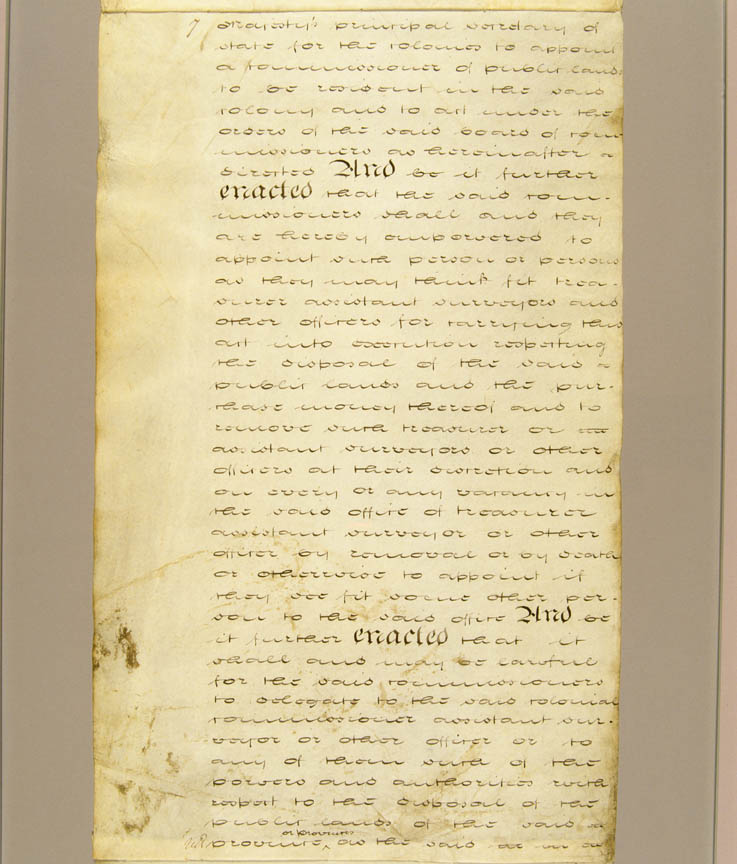 7 Majesty's principal secretary of
state for the colonies to appoint
a commissioner of public lands
to be resident in the said
colony and to act under the
orders of the said board of com-
missioners as hereinafter
directed And be it further
enacted that the said com-
missioners shall and they
are hereby empowered to
appoint such person or persons
as they may think fit trea-
surer assistant surveyors and
other officers for carrying this
act into execution respecting
the disposal of the said
public lands and the pur-
chase money thereof and to
remove such treasurer or
assistant surveyors or other
officers at their discretion and
on every or any vacancy in
the said office of treasurer
assistant surveyor or other
officer by removal or by death
or otherwise to appoint if
they see fit some other per-
son to the said office And be
it further enacted that it
shall and may be lawful
for the said commissioners
to delegate to the said colonial
commissioner assistant sur-
veyor or other officer or to
any of them such of the
powers and authorities with
respect to the disposal of the
public lands of the said
or provinces
province, as the said